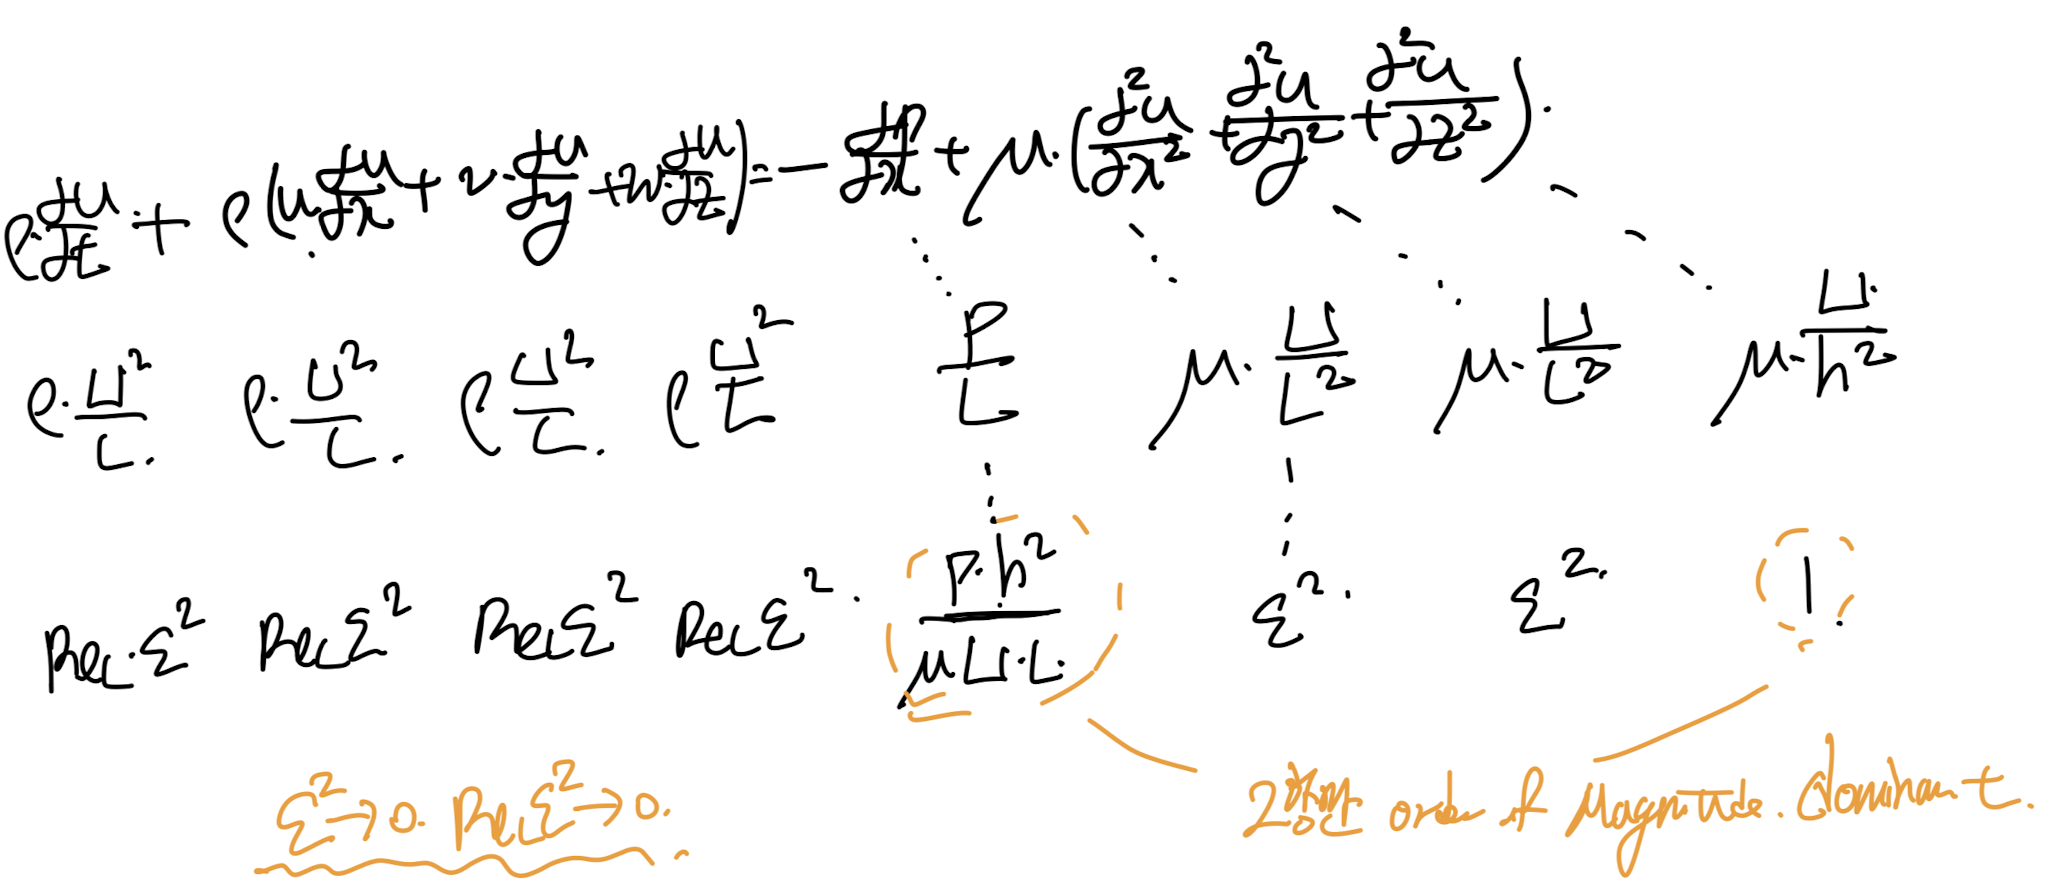 ρ·∂u/∂t + ρ(u ∂u/∂x + v·∂u/∂y + w·∂u/∂z) = − ∂p/∂x + μ·(∂²u/∂x² + ∂²u/∂y² + ∂²u/∂z²).
ρ·U²/L. ρ·U²/L. ρ U²/L. ρ U²/L P/L μ·U/L² μ·U/L² μ·U/h²
Re_L·ε² Re_L ε² Re_L ε² Re_L ε². P·h²/μU·L. ε². ε². 1.
ε²→0. Re_L ε²→0.
2 order of Magnitude. dominant.